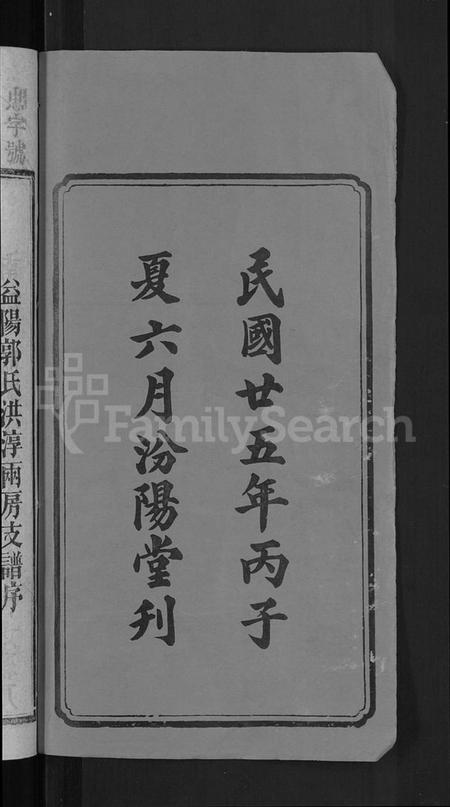 民國廿五年丙子
夏六月汾陽堂刋
字號
益陽郭氏洪淳兩房支譜序
FamilySearch